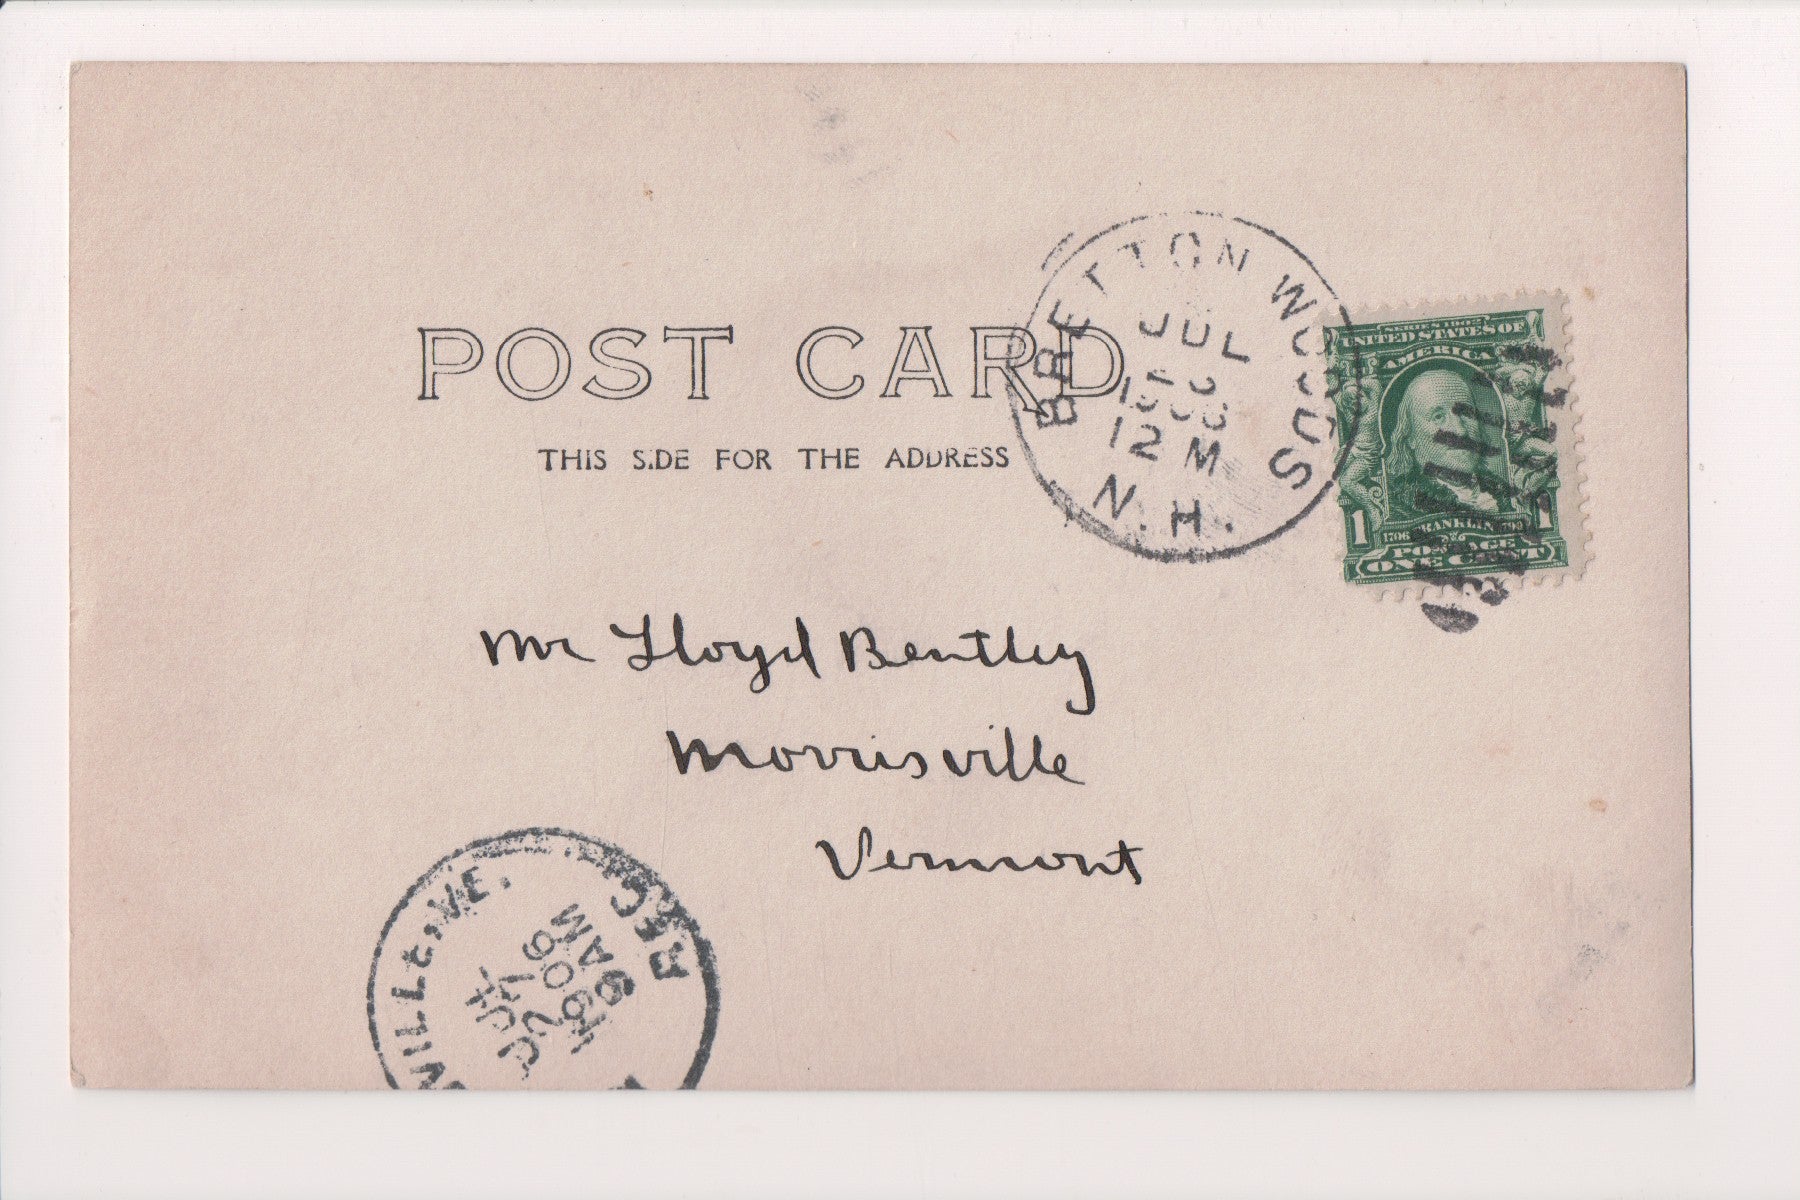 POST CARD
THIS SIDE FOR THE ADDRESS
BRETTON WOODS
JUL
1906
12 M
N.H.
SERIES 1902
UNITED STATES OF
AMERICA
1 FRANKLIN 1
1706 1790
POSTAGE
ONE CENT
Mr Lloyd Bentley
Morrisville
Vermont
VILLE, VT.
REC'D
JUL
27
1906
9 AM